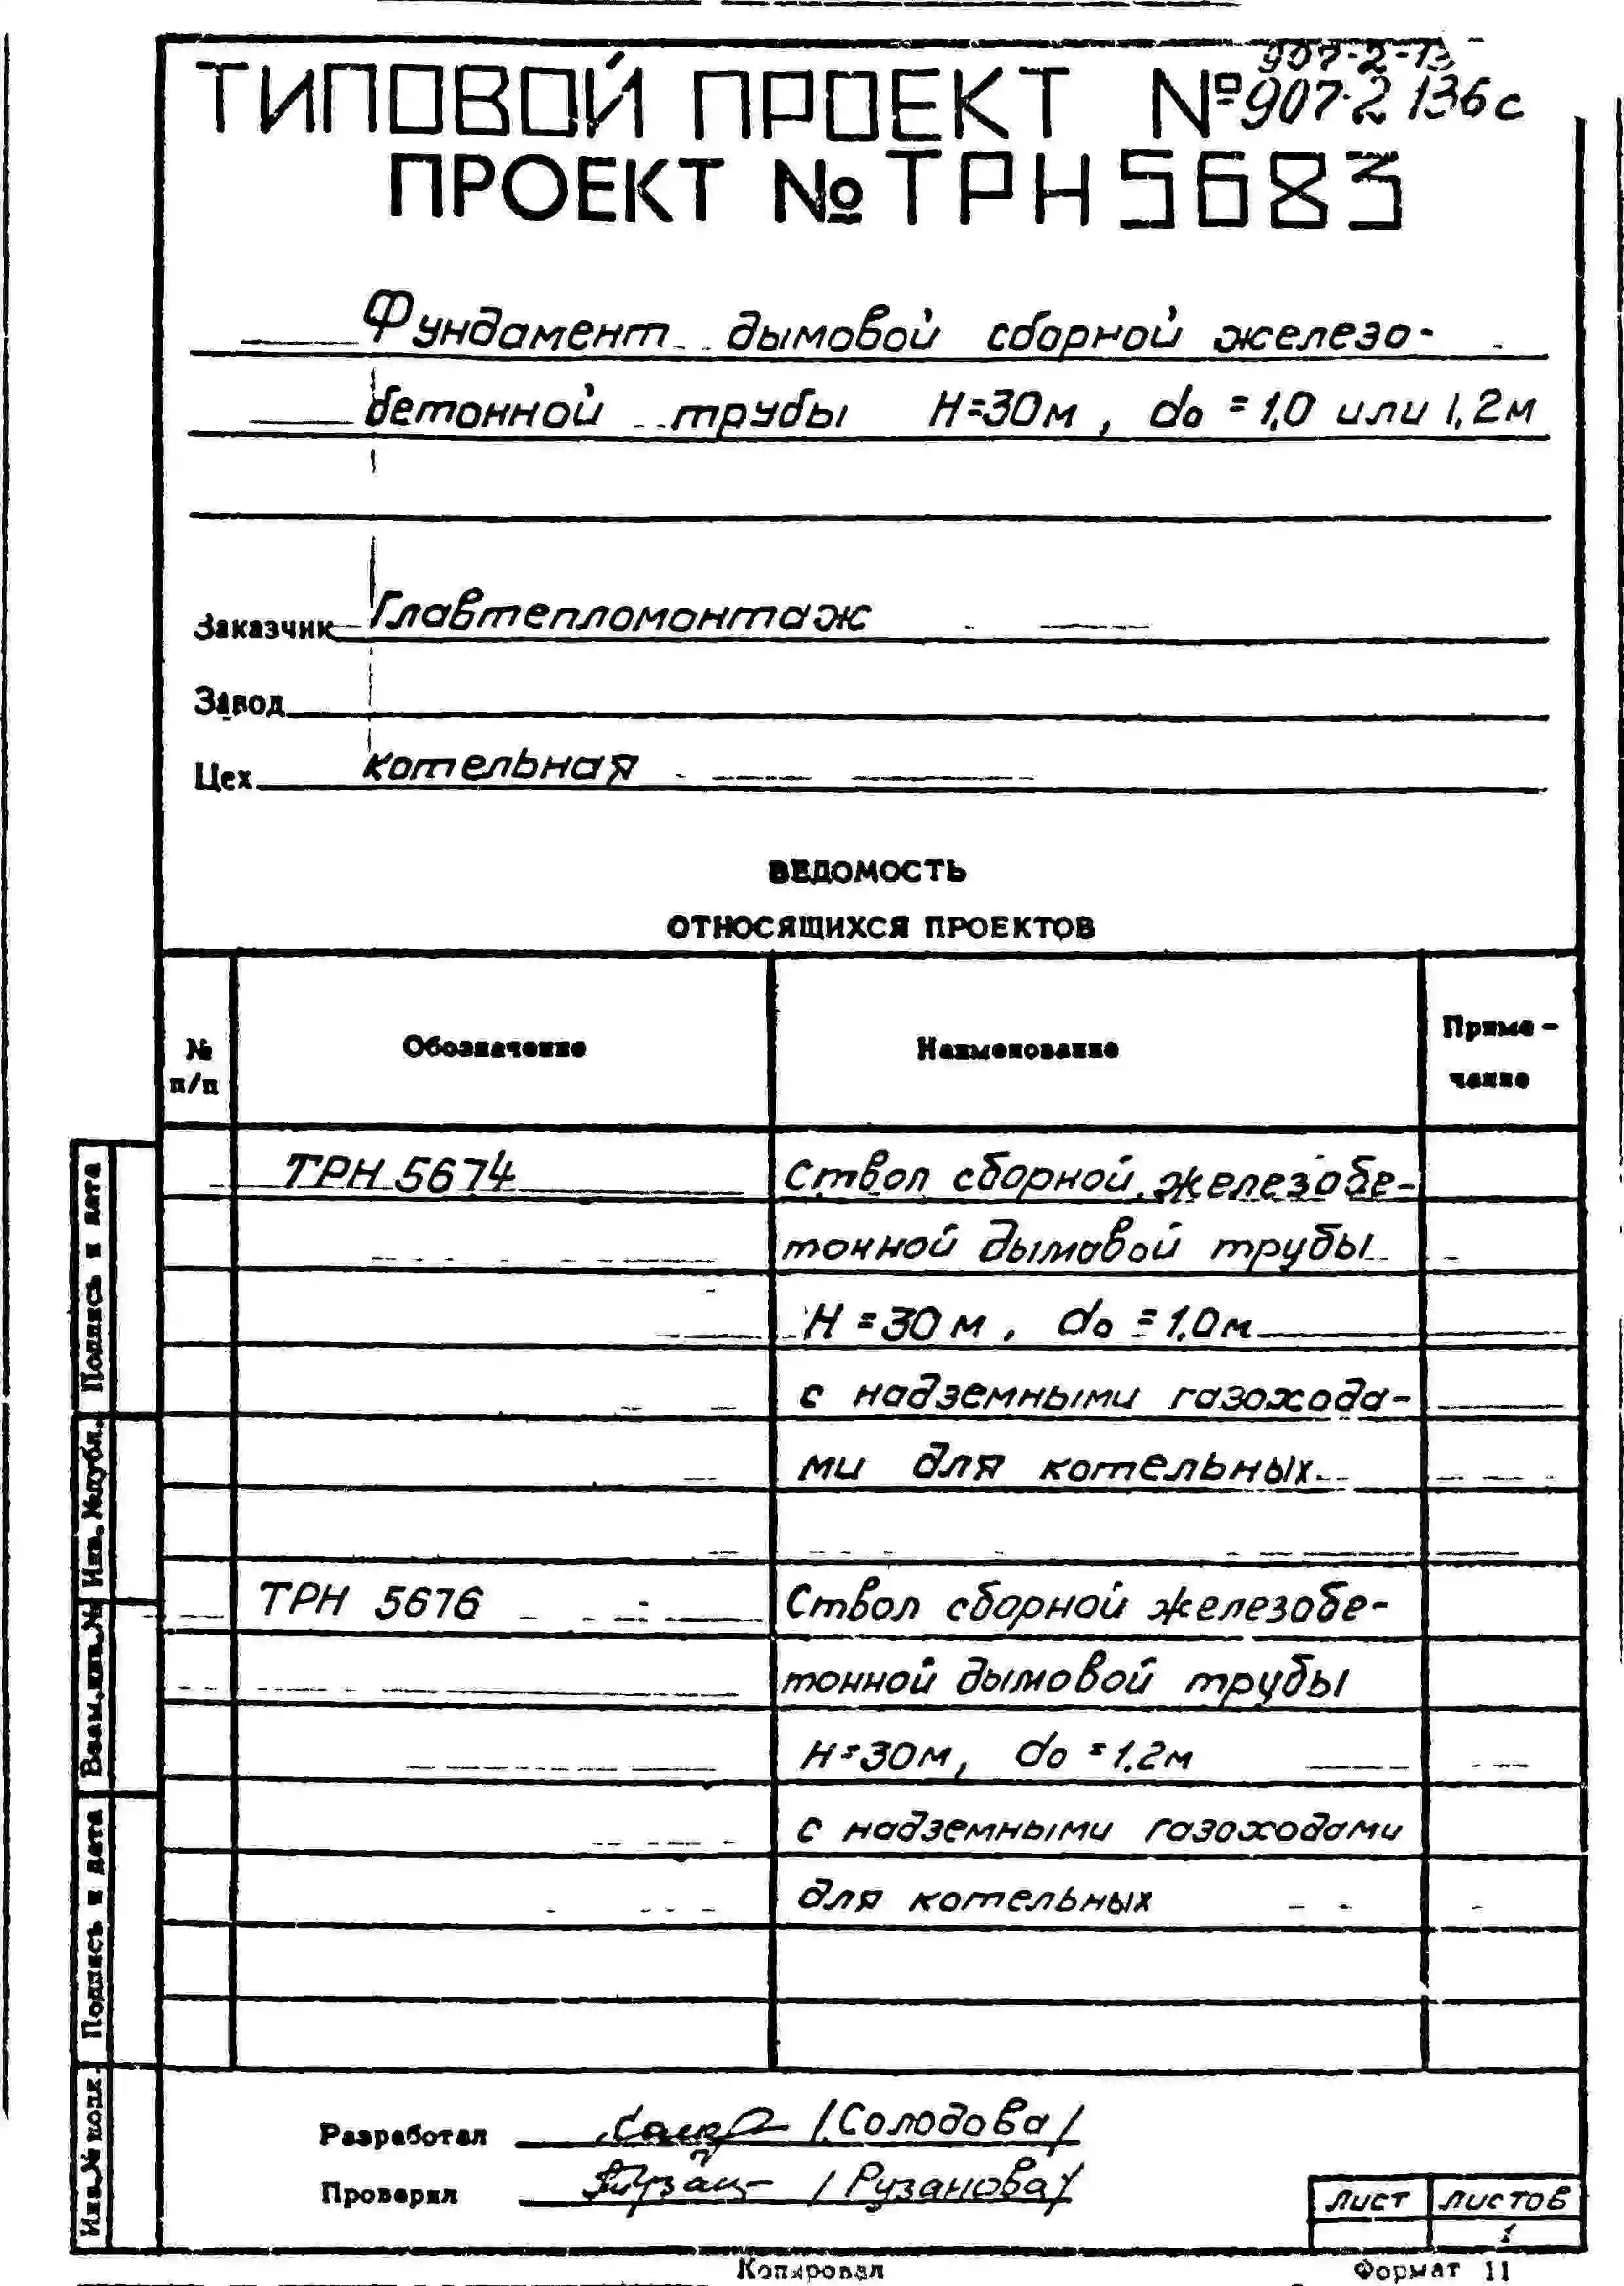 907-2-13
ТИПОВОЙ ПРОЕКТ №907-2 136с
ПРОЕКТ № ТРН 5683
Фундамент дымовой сборной железо-
бетонной трубы H=30м, do = 1,0 или 1,2м
Заказчик Главтепломонтаж
Завод
Цех котельная
ВЕДОМОСТЬ
ОТНОСЯЩИХСЯ ПРОЕКТОВ
№ п/п
Обозначение
Наименование
Приме-
чание
ТРН 5674 Ствол сборной железобе-
тонной дымовой трубы
H = 30 м, do = 1.0м
с надземными газохода-
ми для котельных
ТРН 5676 Ствол сборной железобе-
тонной дымовой трубы
H=30м, do = 1.2м
с надземными газоходами
для котельных
Подпись и дата
Инв.№дубл.
Взам.инв.№
Подпись и дата
Инв.№ подл.
Разработал /Солодова/
Проверил /Рузанова/
лист листов
1
Копировал Формат 11